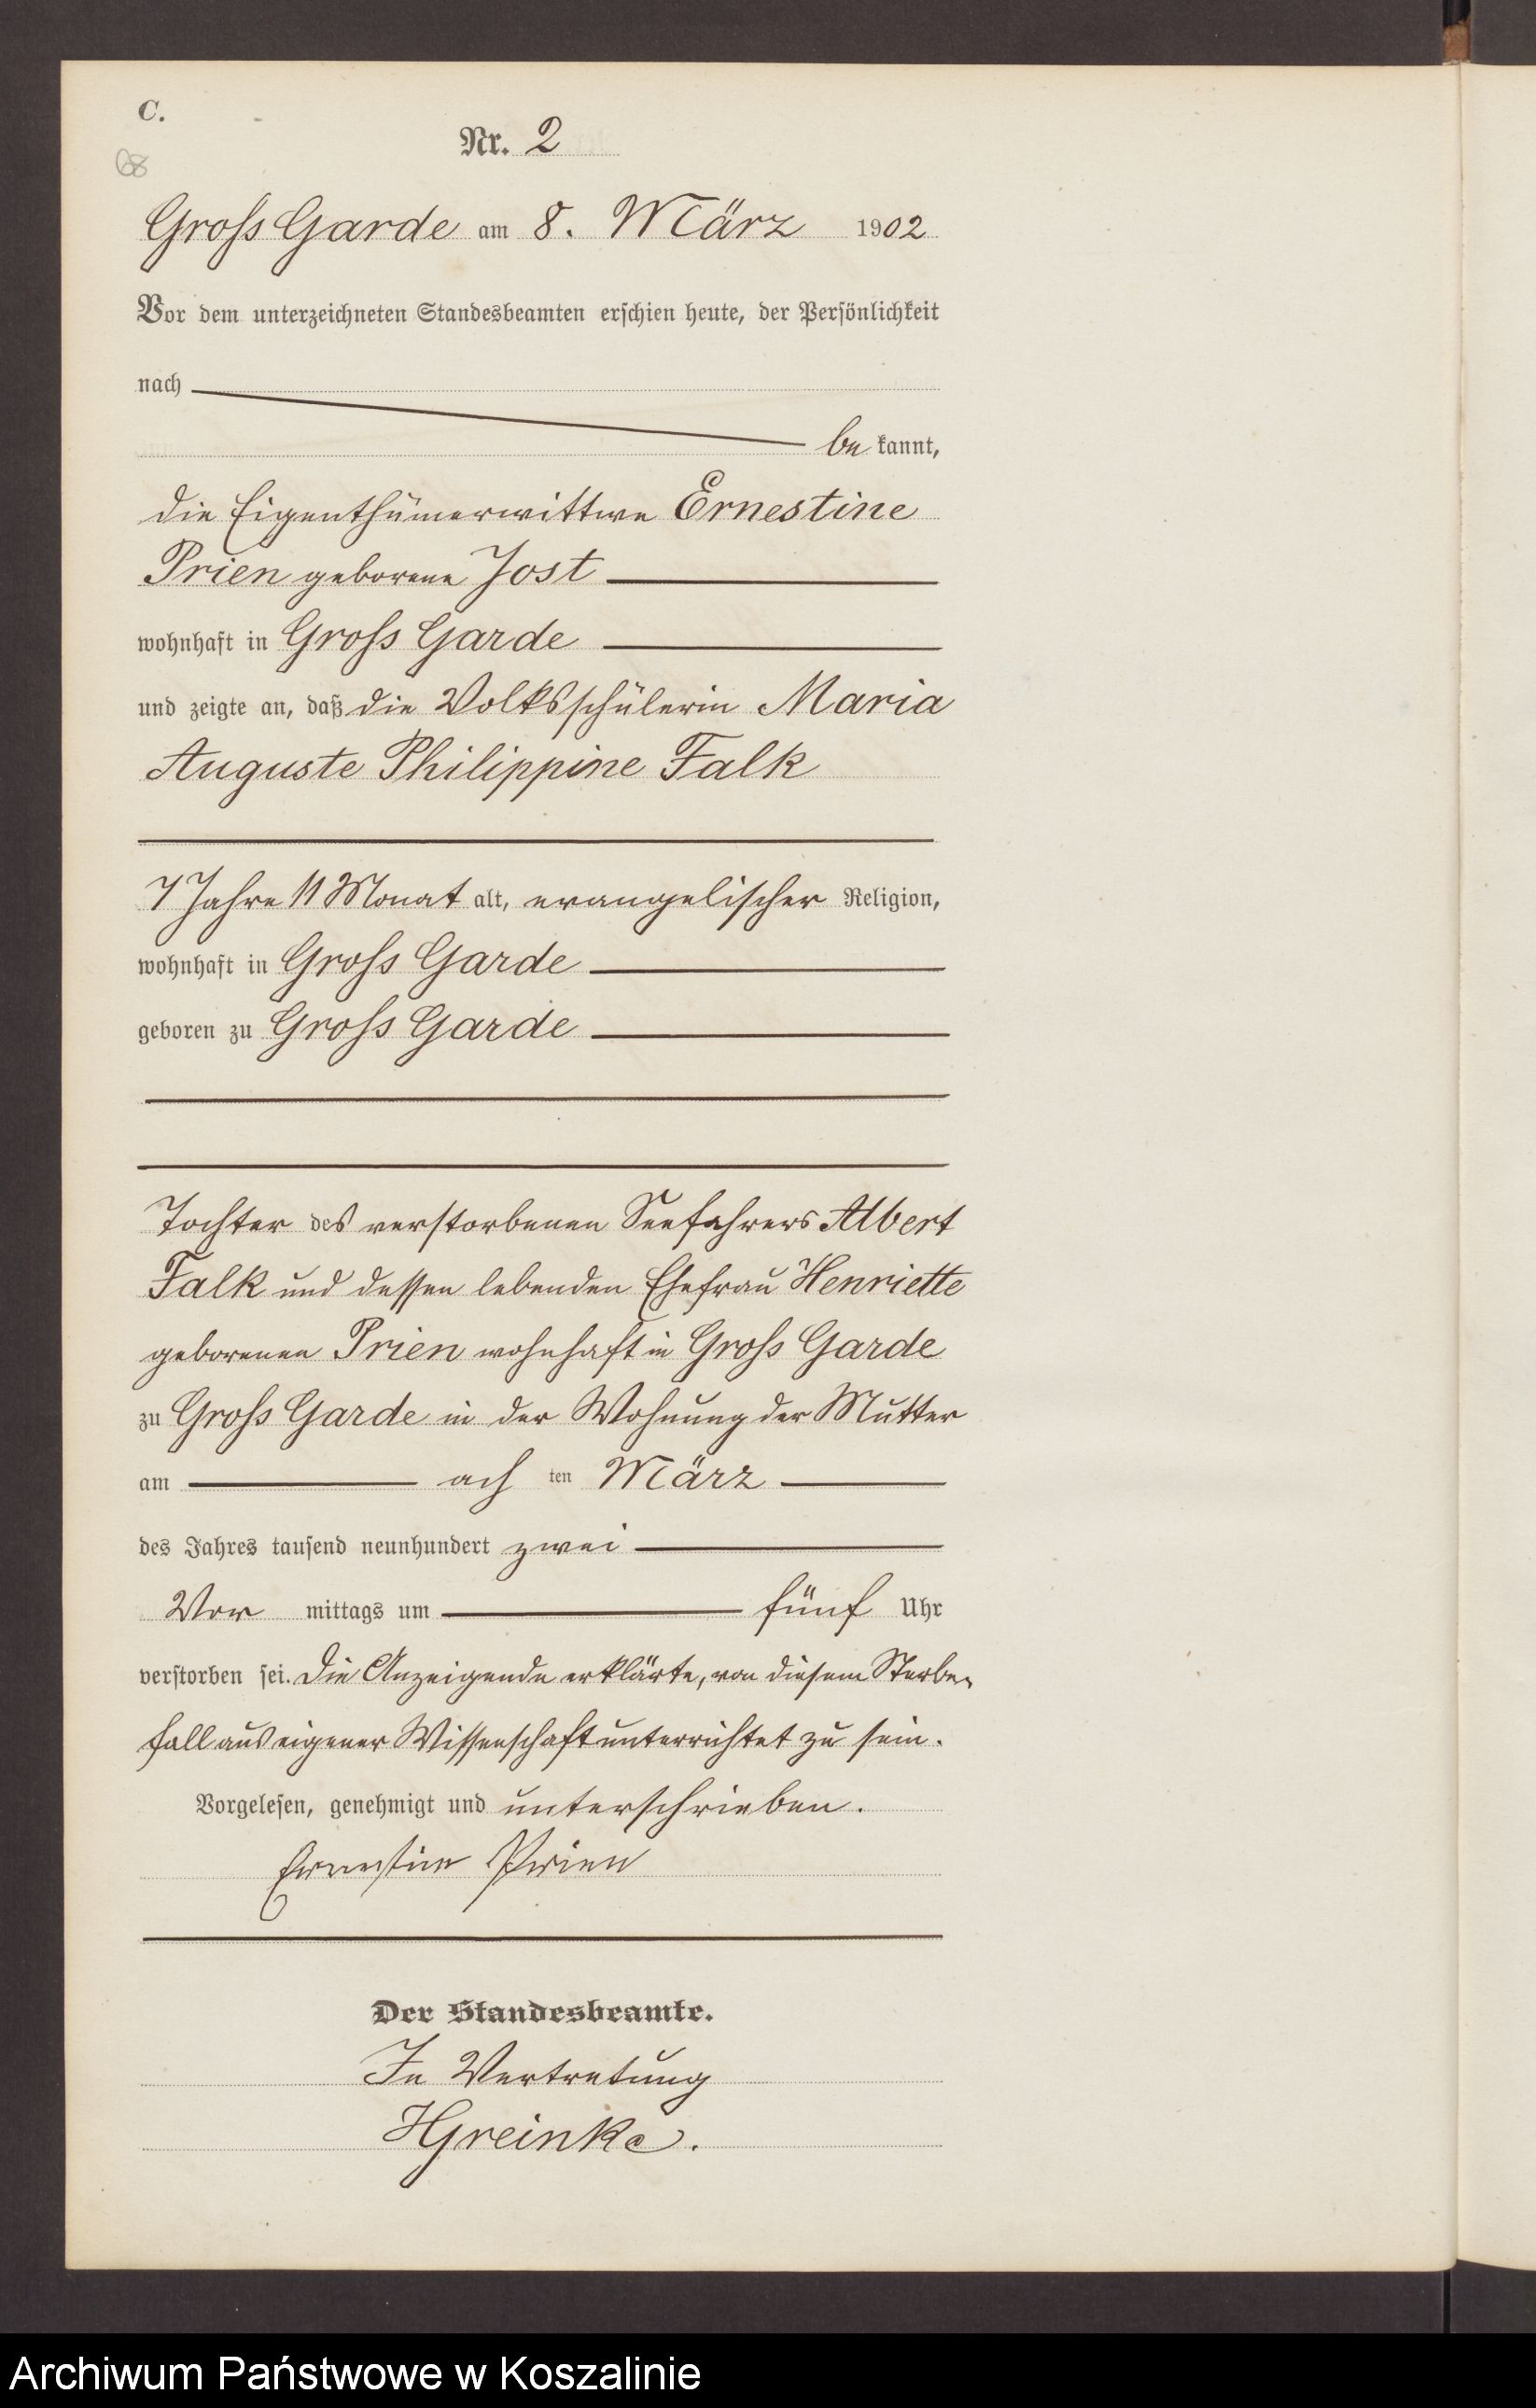 C.
Nr. 2
68
Gross Garde am 8. März 1902
Vor dem unterzeichneten Standesbeamten erschien heute, der Persönlichkeit
nach
be kannt,
die Eigenthümerwittwe Ernestine
Prien geborene Jost
wohnhaft in Gross Garde
und zeigte an, daß die Volksschülerin Maria
Auguste Philippine Falk
7 Jahre 11 Monat alt, evangelischer Religion,
wohnhaft in Gross Garde
geboren zu Gross Garde
Tochter des verstorbenen Seefahrers Albert
Falk und dessen lebenden Ehefrau Henriette
geborenen Prien wohnhaft in Gross Garde
zu Gross Garde in der Wohnung der Mutter
am ach ten März
des Jahres tausend neunhundert zwei
Vor mittags um fünf Uhr
verstorben sei. Die Anzeigende erklärte, von diesem Sterbe-
fall aus eigener Wissenschaft unterrichtet zu sein.
Vorgelesen, genehmigt und unterschrieben.
Ernestine Prien
Der Standesbeamte.
In Vertretung
HGreinke.
Archiwum Państwowe w Koszalinie